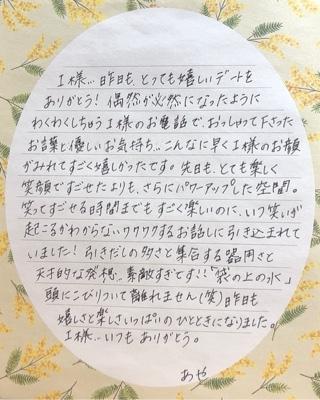 I様… 昨日も、とっても嬉しいデートを
ありがとう! 偶然が必然になったように
わくわくしちゅうI様のお電話で、おっしゃって下さった
お言葉と優しいお気持ち… こんなに早くI様のお顔
がみれてすごく嬉しかったです。先日も、とても楽しく
笑顔ですごせたよりも、さらにパワーアップした空間。
笑ってすごせる時間までもすごく楽しいのに、いつ笑いが
起こるかわからないワクワクするお話しに引き込まれて
いました! 引きだしの多さと集合する器用さと
天才的な発想… 素敵すぎです!!「袋の上の氷」
頭にこびりついて離れません(笑)昨日も
嬉しさと楽しさいっぱいのひとときになりました。
I様… いつもありがとう。
あや